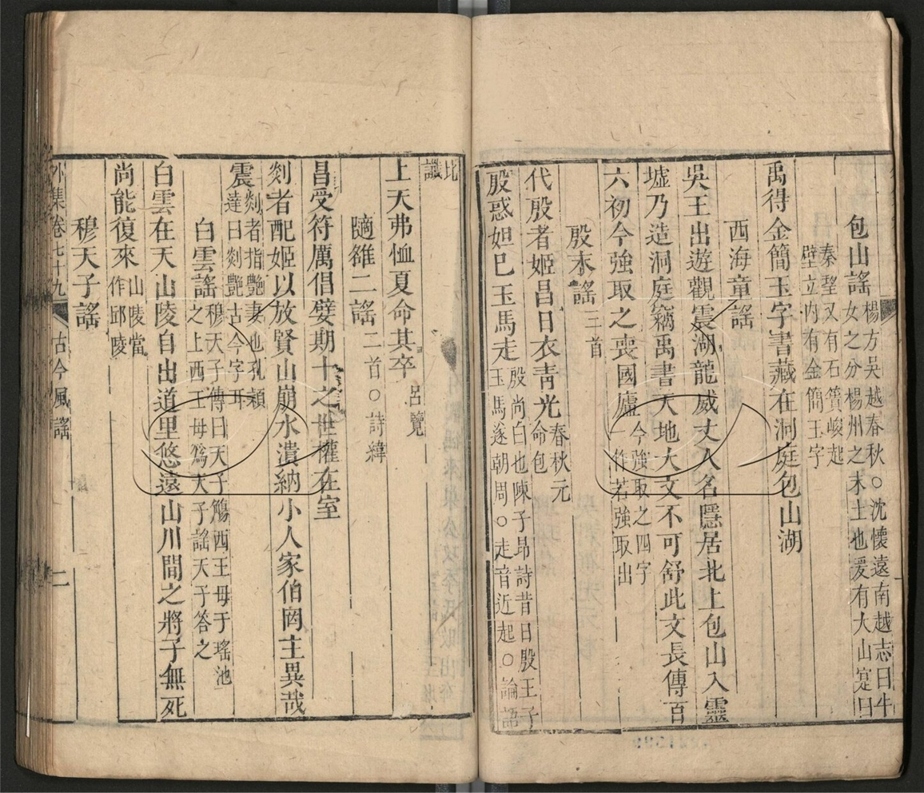 包山謠
楊方吳越春秋○沈懷遠南越志曰牛
女之分楊州之末土也爰有大山寔曰
秦望又有石簣峻起
壁立內有金簡玉字
禹得金簡玉字書藏在洞庭包山湖
西海童謠
吳王出遊觀震湖龍威丈人名隱居北上包山入靈
墟乃造洞庭竊禹書天地大文不可舒此文長傳百
六初今強取之喪國廬
今強取之四字
一作若強取出
殷末謠三首
代殷者姬昌日衣青光
春秋元
命包
殷惑妲巳玉馬走
殷尚白也陳子昂詩昔日殷王子
玉馬遂朝周○走音近起○論語
比
讖
上天弗恤夏命其卒
呂覽
隨雒二謠二首○詩緯
昌受符厲倡嬖期十之世權在室
剡者配姬以放賢山崩水潰納小人家伯罔主異哉
震
剡者指艷妻也孔穎
達曰剡艷古今字耳
白雲謠
穆天子傳曰天子觴西王母于瑤池
之上西王母爲天子謠天子答之
白雲在天山陵自出道里悠遠山川間之將子無死
尚能復來
山陵當
作邱陵
穆天子謠
外集卷七十九
古今風謠
二